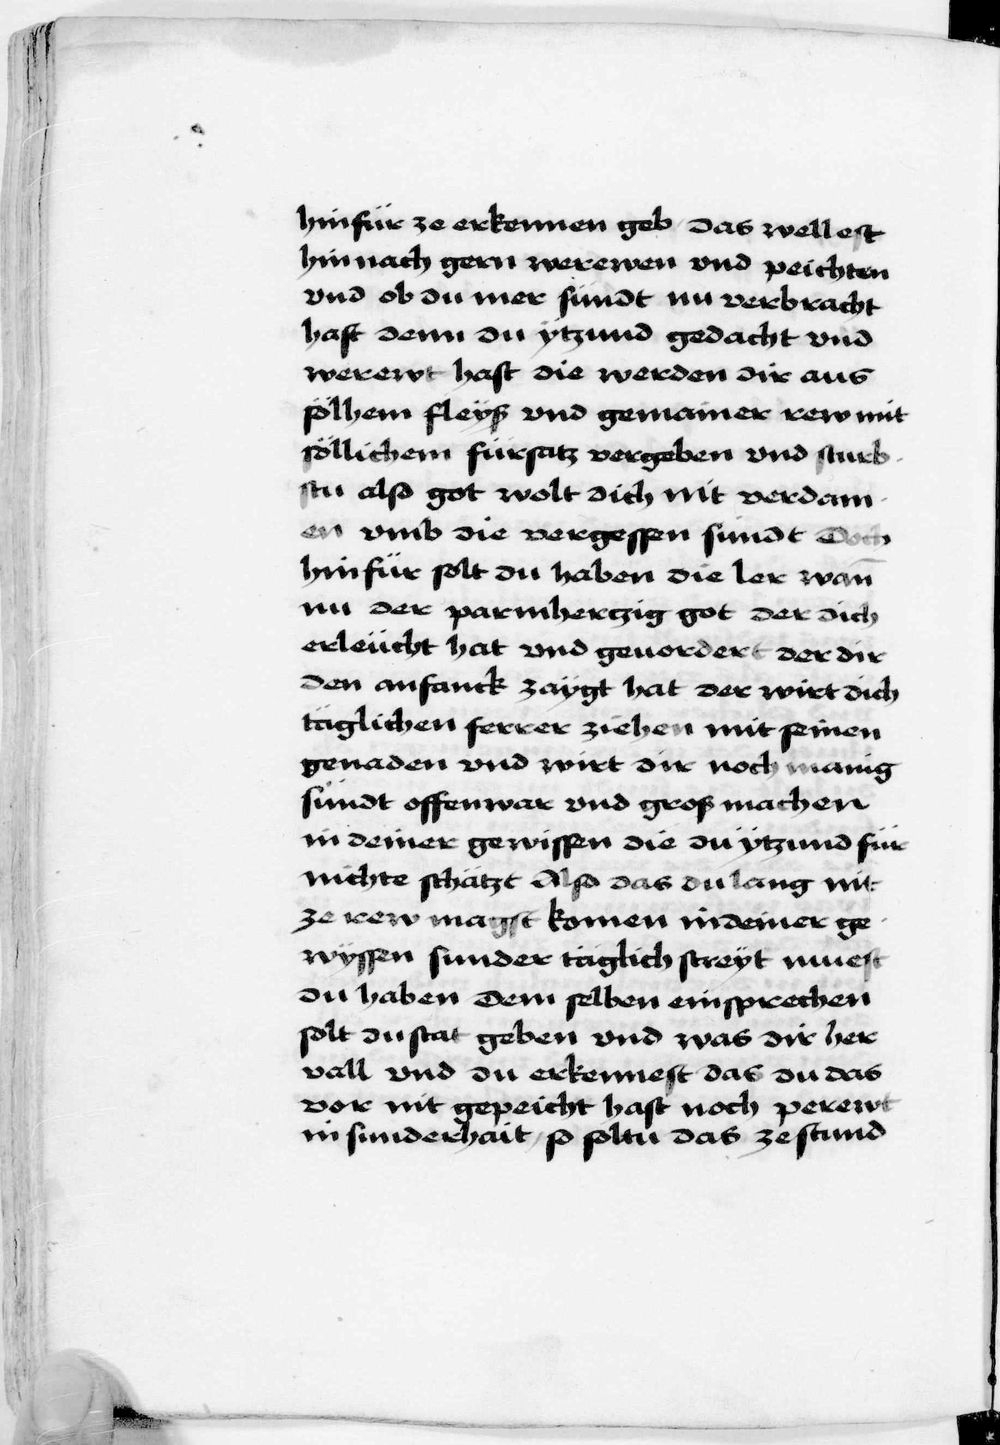 hinfür ze erkennen geb / das wellest
hinnach gern werewen vnd peichten
vnd ob du mer sündt nu verbracht
hast denn du ÿtzund gedacht vnd
werewt hast die werden dir aus
sölhem fleÿß vnd gemainer rew mit
söllichem fürsatz vergeben vnd sturb-
stu also got wolt dich nit verdam-
en vmb die vergessen sündt Doch
hinfür solt du haben die ler wañ
nu der parmhertzig got der dich
erleücht hat vnd geuordert der dir
den anfanck zaÿgt hat der wirt dich
täglichen ferrer ziehen mit seinen
genaden vnd wirt dir noch manig
sündt offenwar vnd groß machen
in deiner gewissen die du ÿtzund für
nichte schätzt Also das du lang nit
ze rew magst komen in deiner ge-
wÿssen sunder täglich streÿt muest
du haben Dem selben einsprechen
solt du stat geben vnd was dir her
vall vnd du erkennest das du das
vor nit gepeicht hast noch perewt
in sunderhait / so soltu das ze stund